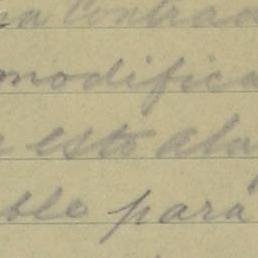 na contra
modifica
esto ala
ble para